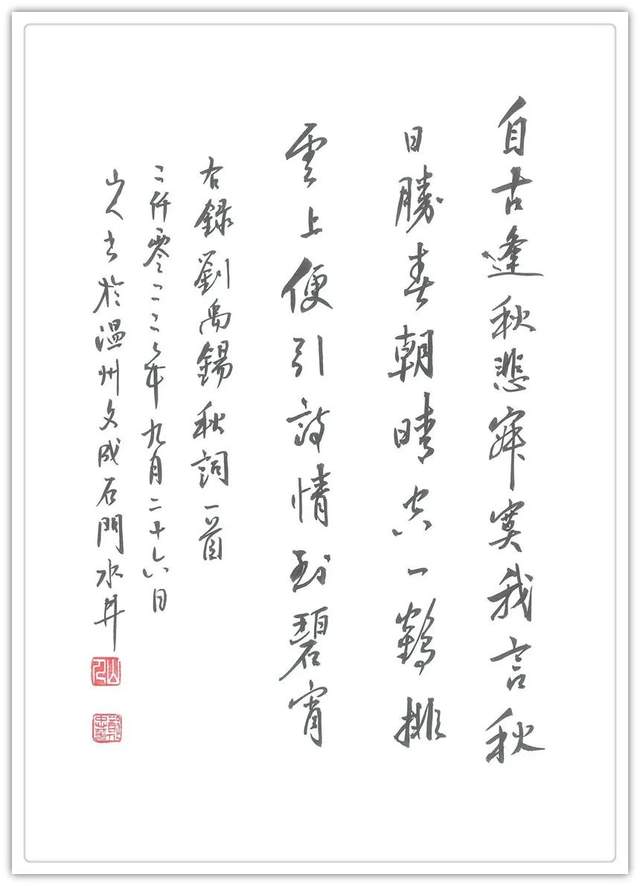 自古逢秋悲寂寞我言秋
日勝春朝晴空一鶴排
雲上便引詩情到碧宵
右録劉禹錫秋詞一首
二仟零二二年九月二十六日
山人书於温州文成石門水井
山人